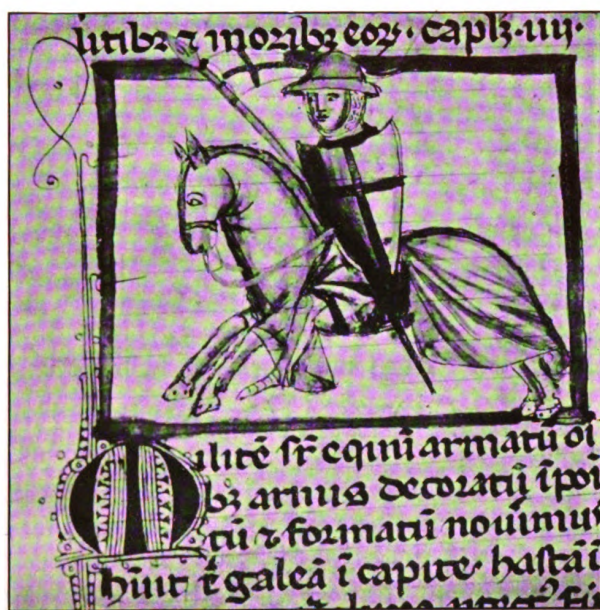 litibꝫ ⁊ moribꝫ eoꝝ · caplꝫ · iiii ·
Militē sr̄ equū armatū oi
bꝫ armis decoratū īpoi
tū ⁊ formatū nouimus
hūit ē galeā ī capite · hastā ī